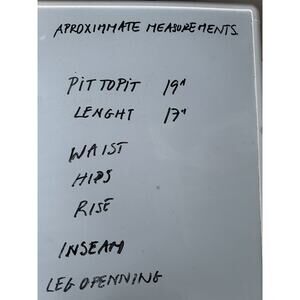 APROXIMMATE MEASUREMENTS.
PIT TO PIT 19"
LENGHT 17"
WAIST
HIPS
RISE
INSEAM
LEG OPENNING